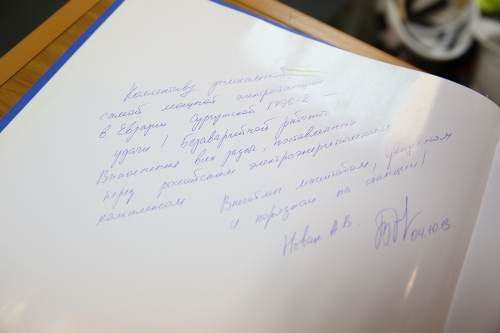 Коллективу уникальной
самой мощной электростанции
в Евразии Сургутской ГРЭС-2 —
удачи! Безаварийной работы
Выполнения всех задач, поставленных
перед российским электроэнергетическим
комплексом Впечатлён масштабом,
и порядком на станции!
Новак А В.
04.10.13